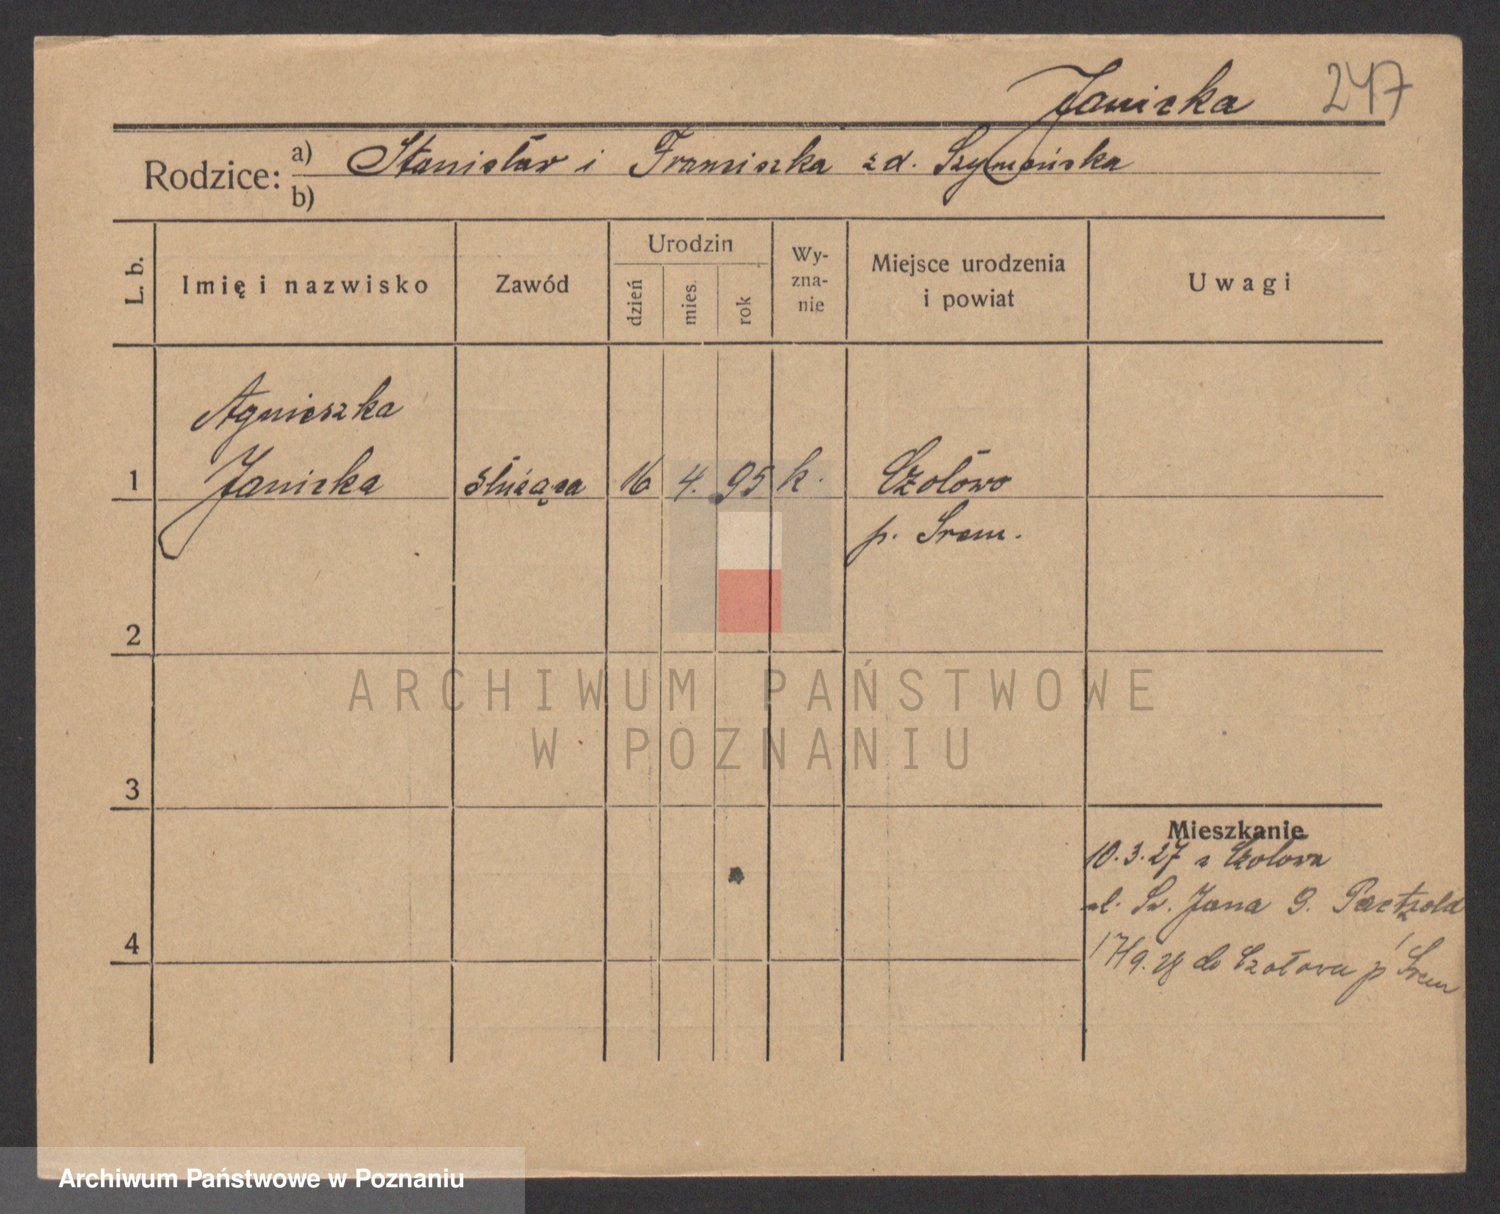 Janicka 247
Rodzice: a) Stanisław i Franciszka z d. Szymańska
b)
L. b. Imię i nazwisko Zawód Urodzin dzień mies. rok Wy-zna-nie Miejsce urodzenia i powiat Uwagi
Agnieszka
1 Janicka służąca 16 4. 95 k. Czołowo
p. Śrem.
2
ARCHIWUM PAŃSTWOWE
W POZNANIU
3
Mieszkanie
10.3.27 z Czołowa
ul. Św. Jana 9. Paetzold
4
17/9.28 do Czołowa p/ Śrem
Archiwum Państwowe w Poznaniu